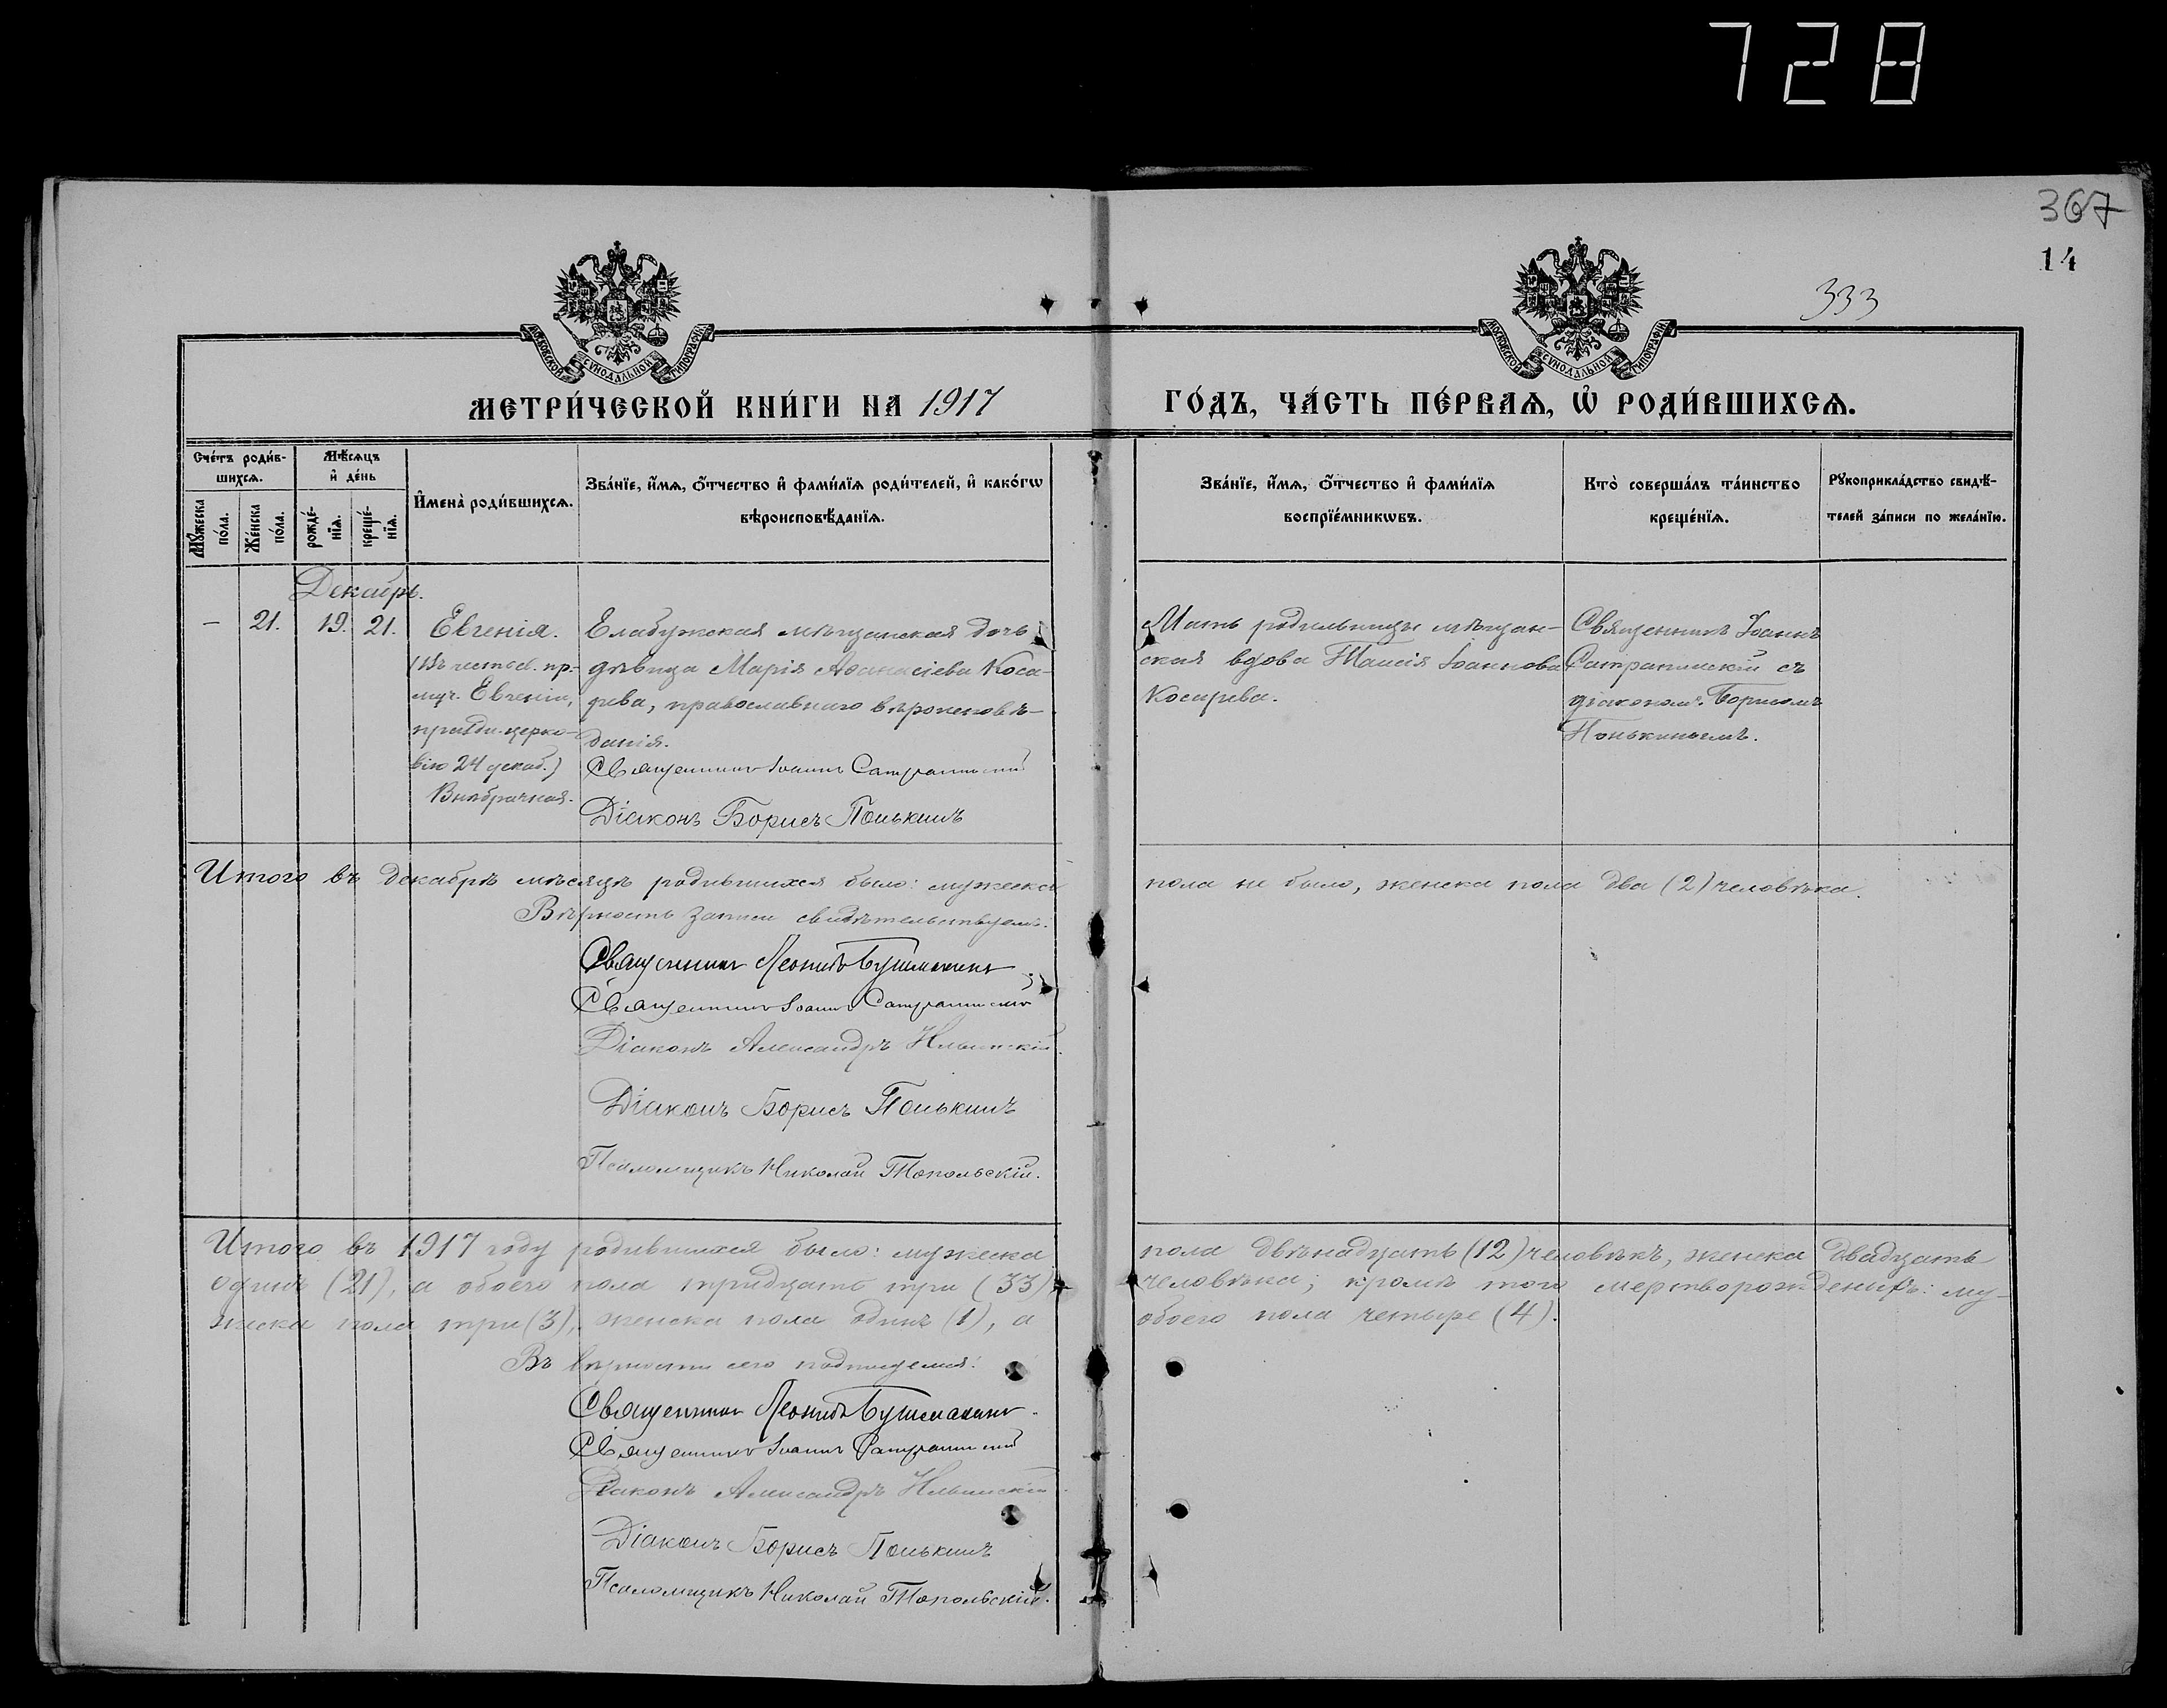 728
367
14
333
МОСКОВСКОЙ СѴНОДАЛЬНОЙ ТИПОГРАФІИ
МОСКОВСКОЙ СѴНОДАЛЬНОЙ ТИПОГРАФІИ
МЕТРИ́ЧЕСКОЙ КНИ́ГИ НА 1917
ГО́ДЪ, ЧА́СТЬ ПЕ́РВАѦ, Ѡ҆ РОДИ́ВШИХСѦ.
Сче́тъ роди́в-
шихсѧ.
Мѣ́сѧцъ
и҆ де́нь
Мꙋ́жеска по́ла.
Же́нска по́ла.
рожде́-нїѧ.
креще́-нїѧ.
И҆мена̀ роди́вшихсѧ.
Зва́нїе, и҆́мѧ, ѻ҆́тчество и҆ фами́лїѧ роди́телей, и҆ како́гѡ
вѣроисповѣ́данїѧ.
Зва́нїе, и҆́мѧ, ѻ҆́тчество и҆ фами́лїѧ
воспрїе́мникѡвъ.
Кто̀ соверша́лъ та́инство
креще́нїѧ.
Рꙋкоприкла́дство свидѣ́-
телей за́писи по жела́нїю.
Декабрь.
— 21. 19. 21. Евгенія.
(Въ честь св. пр-
муч. Евгеніи,
празднуемой церко-
вію 24 декаб.)
Внѣбрачная.
Елабужская мѣщанская дочь
дѣвица Марія Аѳанасіева Коса-
рева, православнаго вѣроисповѣ-
данія.
Священникъ Іоаннъ Сатрапинскій
Діаконъ Борисъ Понькинъ
Мать родильницы мѣщан-
ская вдова Таисія Іоаннова
Косарева.
Священникъ Іоаннъ
Сатрапинскій съ
діакономъ Борисомъ
Понькинымъ.
Итого въ декабрѣ мѣсяцѣ родившихся было: мужеска
пола не было, женска пола два (2) человѣка.
Вѣрность записи свидѣтельствуемъ:
Священникъ Леонидъ Бушмакинъ
Священникъ Іоаннъ Сатрапинскій
Діаконъ Александръ
Діаконъ Борисъ Понькинъ
Псаломщикъ Николай Топольскій.
Итого въ 1917 году родившихся было: мужеска
пола двѣнадцать (12) человѣкъ, женска двадцать
одинъ (21), а обоего пола тридцать три (33)
человѣка; кромѣ того мертворожденныхъ: му-
жеска пола три (3), женска пола одинъ (1), а
обоего пола четыре (4).
Въ вѣрности сего подпишемся:
Священникъ Леонидъ Бушмакинъ.
Священникъ Іоаннъ Сатрапинскій
Діаконъ Александръ
Діаконъ Борисъ Понькинъ
Псаломщикъ Николай Топольскій.